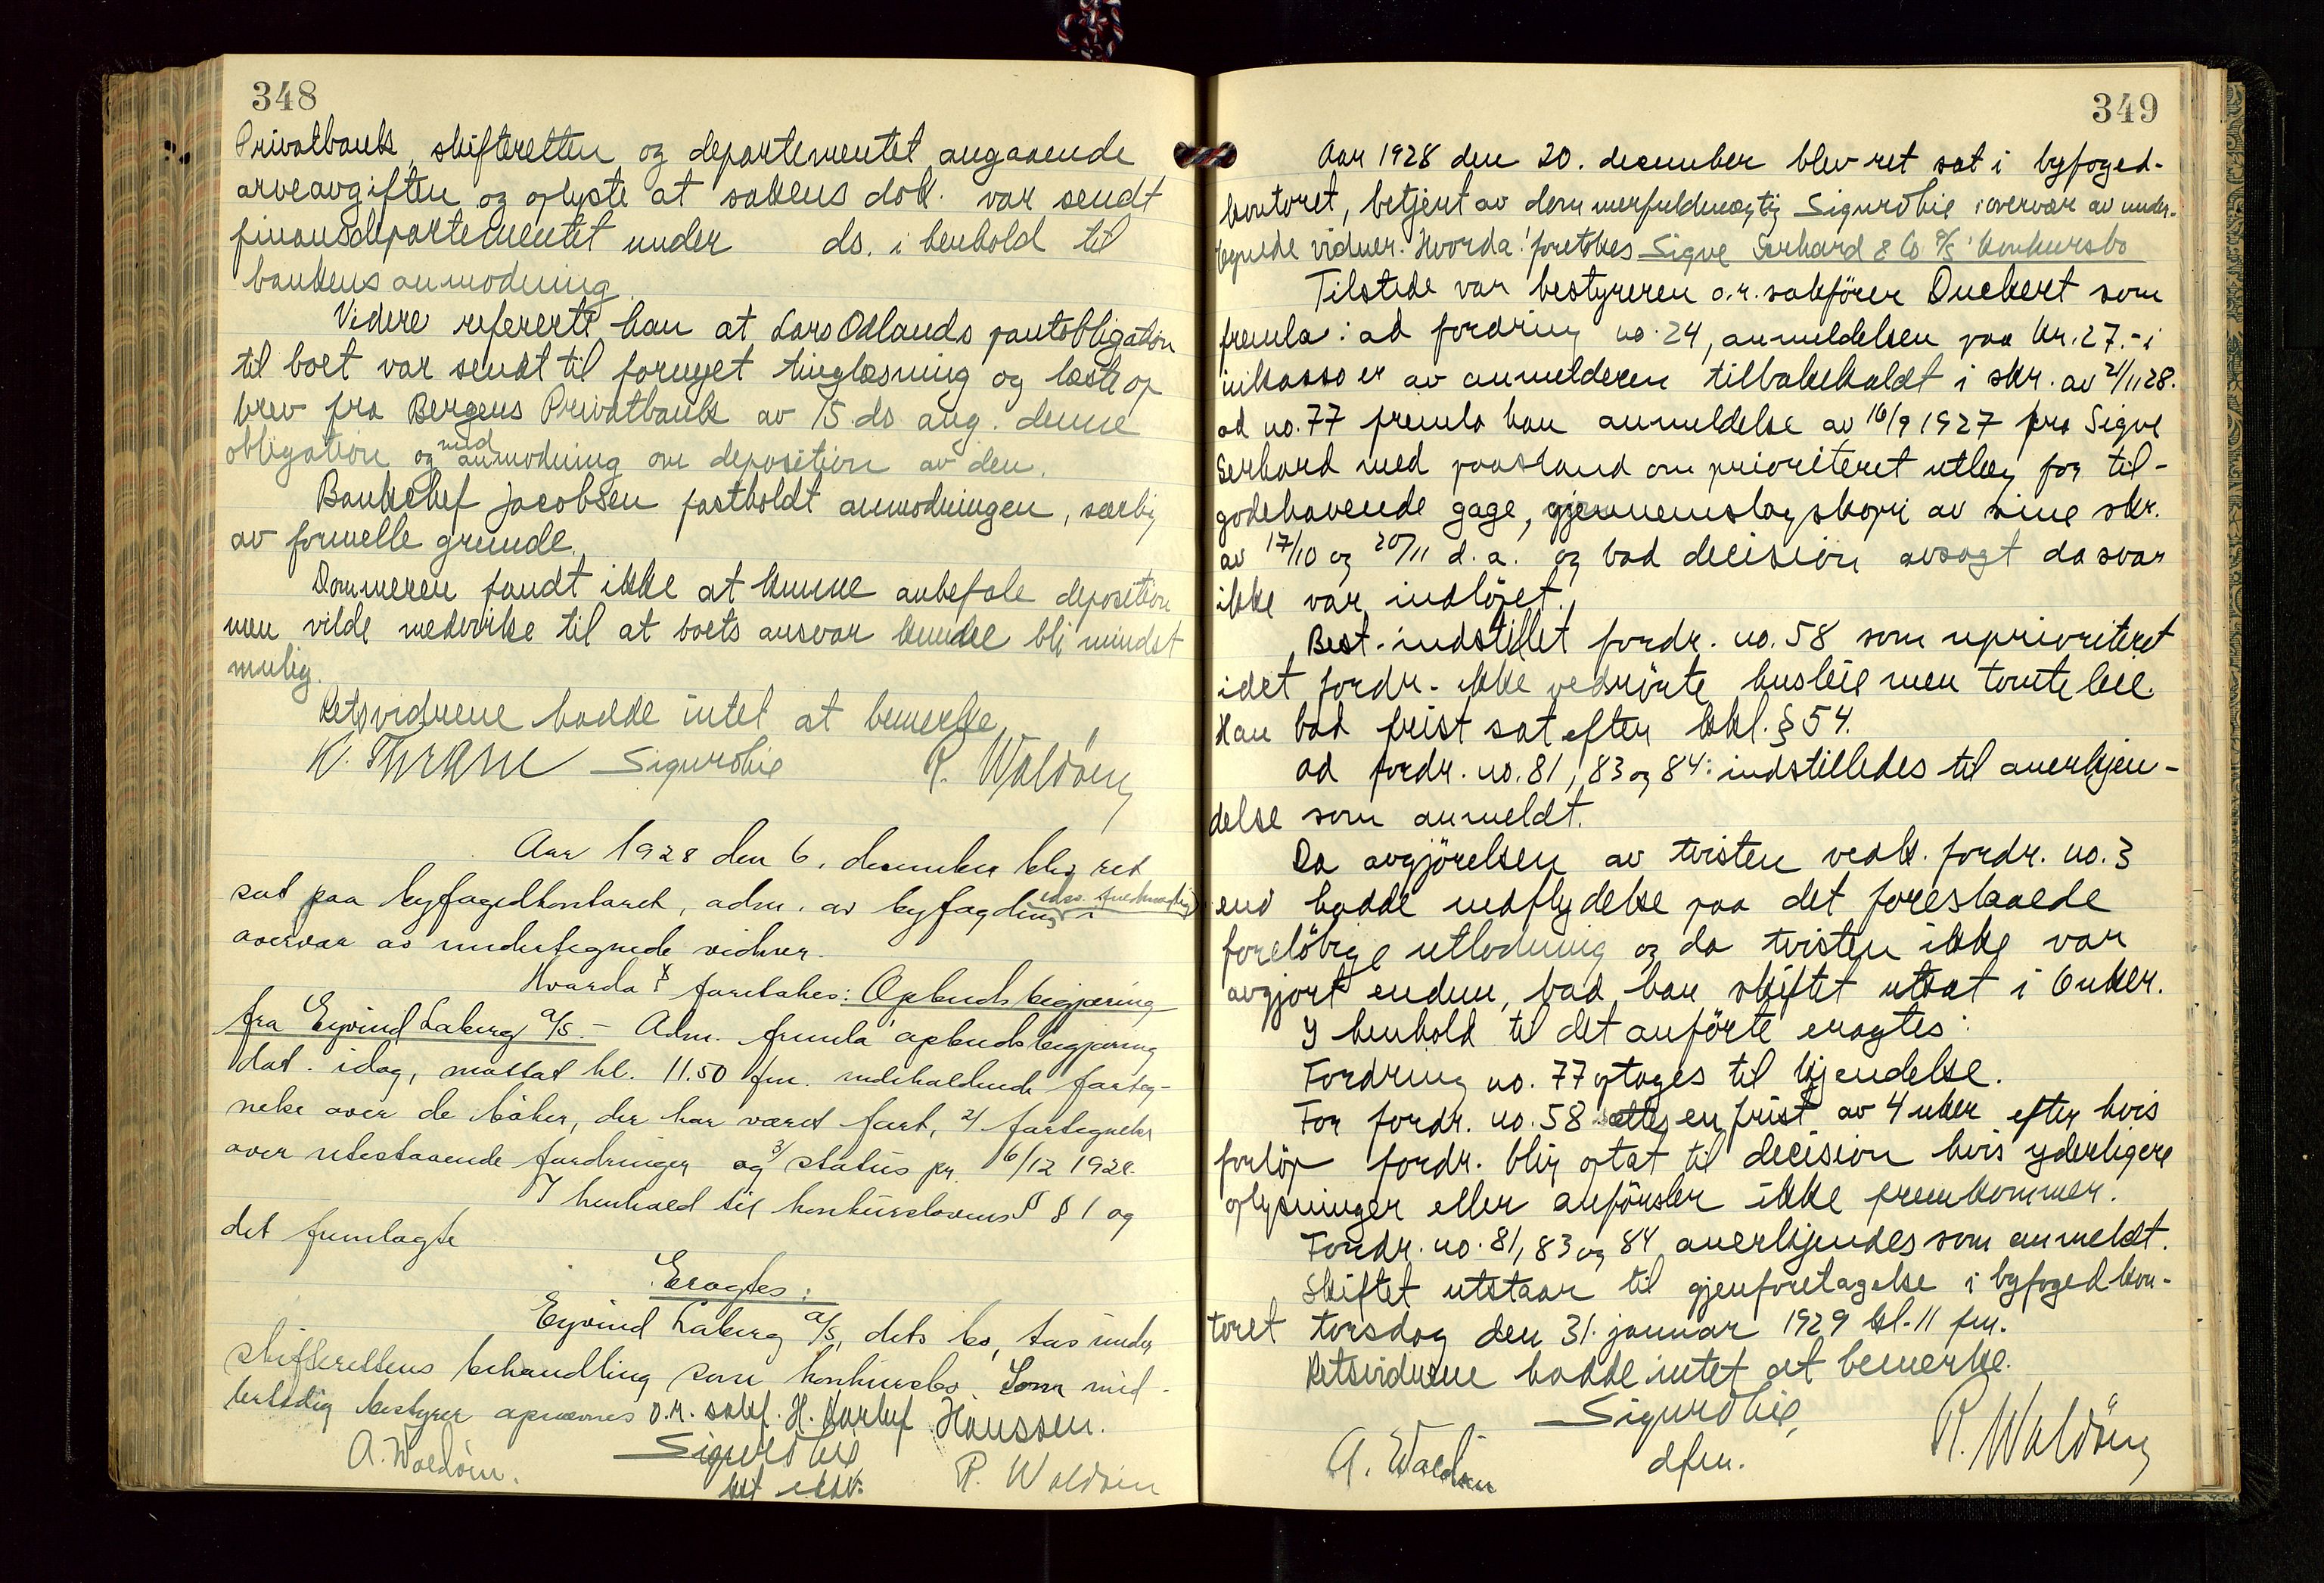 348
Privatbank, skifteretten og departementet angaaende
arveavgiften og oplyste at sakens dok. var sendt
finansdepartementet under ds. i henhold til
bankens anmodning.
Videre refererte han at Lars Odlands pantobligation
til boet var sendt til fornyet tinglæsning og læste op
brev fra Bergens Privatbank av 15 ds. ang. denne
obligation og med anmodning om deposition av den.
Bankchef Jacobsen fastholdt anmodningen, særlig
av formelle grunde.
Dommeren fandt ikke at kunne anbefale deposition
men vilde medvirke til at boets ansvar kunde bli mindst
mulig.
Retsvidnene hadde intet at bemerke.
K. Thrane Sigurd Lie R. Waldöm
Aar 1928 den 6. december blev ret
sat paa byfogedkontoret, adm. av byfogdens i
overvær av undertegnede vidner.
Hvorda foretokes: Opbudsbegjæring
fra Eyvind Laberg a/s. - Adm. fremla opbudsbegjæring
dat. idag, mottat kl. 11.50 fm. indeholdende forteg-
nelse over de bøker, der har været ført, 2/ fortegnelse
over utestaaende fordringer og 3/ status pr. 6/12 1928.
I henhold til konkurslovens § 1 og
det fremlagte
Eragtes:
Eyvind Laberg a/s, dets bo, tas under
skifterettens behandling som konkursbo. Som mid-
lertidig bestyrer opnævnes o.r. sakf. H. Hanssen.
A. Waldöm. Sigurd Lie R. Waldöm
349
Aar 1928 den 20. december blev ret sat i byfoged-
kontoret, betjent av dommerfuldmægtig Sigurd Lie i overvær av under-
tegnede vidner. Hvorda: foretokes Sigve Gerhard & Co a/s' konkursbo
Tilstede var bestyreren o.r. sakfører Duckert som
fremla: ad fordring no. 24, anmeldelsen paa kr. 27.- i
inkasso er av anmelderen tilbakekaldt i skr. av 21/11 28.
ad no. 77 fremla han anmeldelse av 16/9 1927 fra Sigve
Gerhard med paastand om prioriteret utlæg for til-
godehavende gage, gjennemslagskopi av sine skr.
av 17/10 og 20/11 d. a. og bad decision avsagt da svar
ikke var indløpet.
Best. indstillet fordr. no. 58 som uprioriteret
idet fordr. ikke vedrörte husleie men tomteleie.
Han bad frist sat efter kkl. § 54.
ad fordr. no. 81, 83 og 84: indstilledes til anerkjen-
delse som anmeldt.
Da avgjörelsen av tvisten vedk. fordr. no. 3
hadde indflydelse paa det foreslaaede
foreløbige utlodning og da tvisten ikke var
avgjort endnu, bad han skiftet utsat i 6 uker.
I henhold til det anförte eragtes:
Fordring no. 77 optages til kjendelse.
For fordr. no. 58 sættes en frist av 4 uker efter hvis
forløp fordr. blir optat til decision hvis yderligere
oplysninger eller anförsler ikke fremkommer.
Fordr. no. 81, 83 og 84 anerkjendes som anmeldt.
Skiftet utstaar til gjenforetagelse i byfogedkon-
toret torsdag den 31. januar 1929 kl. 11 fm.
Retsvidnene hadde intet at bemerke.
Sigurd Lie,
A. Waldöm dfm. R. Waldöm